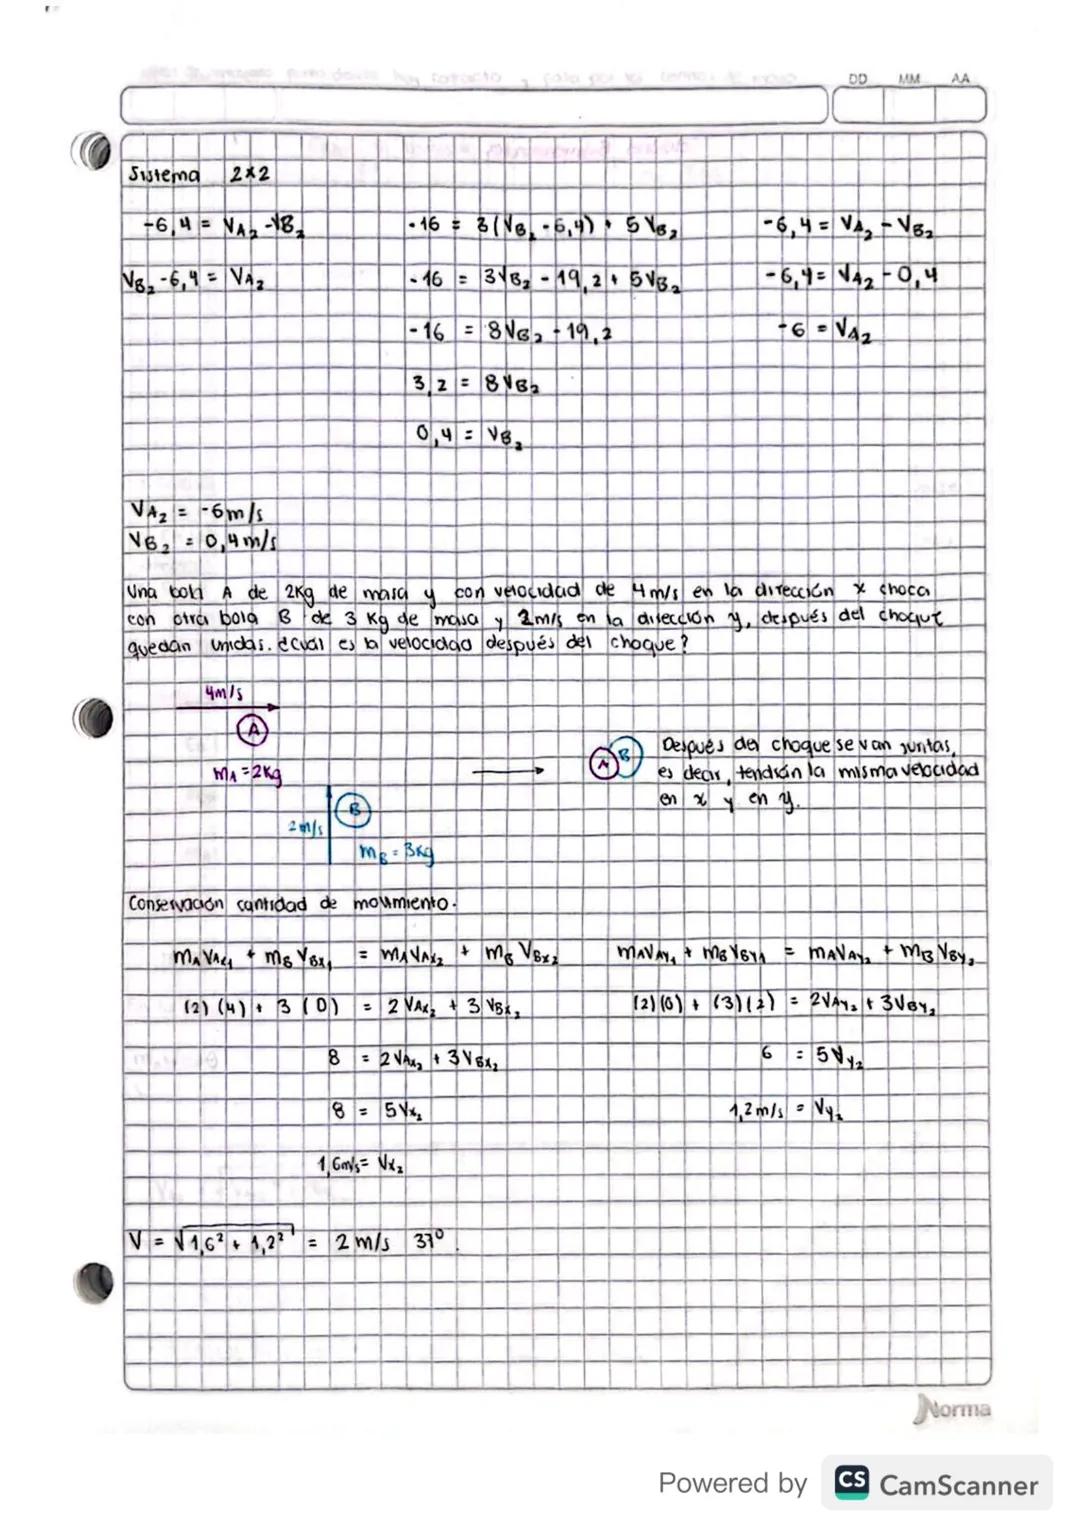 DD MM AA
Sistema 2x2
-6,4 = VA₂ - VB₂
VB₂ - 6,4 = VA₂
-16 = 3(VB₂ - 6,4) + 5VB₂
-16 = 3VB₂ - 19,2 + 5VB₂
-16 = 8VB₂ - 19,2
3,2 = 8VB₂
0,4 = VB₂
-6,4 = VA₂ - VB₂
-6,4 = VA₂ - 0,4
-6 = VA₂
VA₂ = -6m/s
VB₂ = 0,4m/s
Una bola A de 2Kg de masa y con velocidad de 4m/s en la dirección x choca
con otra bola B de 3 Kg de masa y 2m/s en la dirección y, después del choque
quedan unidas. ¿Cuál es la velocidad después del choque?
4m/s
A
mA = 2Kg
2m/s
B
mB = 3Kg
A B
Después del choque se van juntas,
es decir, tendrán la misma velocidad
en x y en y.
Conservación cantidad de movimiento.
mAVAx₁ + mBVBx₁ = mAVAx₂ + mBVBx₂
(2)(4) + 3(0) = 2VAx₂ + 3VBx₂
8 = 2VAx₂ + 3VBx₂
8 = 5Vx₂
1,6m/s = Vx₂
mAVAy₁ + mBVBy₁ = mAVAy₂ + mBVBy₂
(2)(0) + (3)(2) = 2VAy₂ + 3VBy₂
6 = 5Vy₂
1,2m/s = Vy₂
V = √1,6² + 1,2² = 2m/s 37°
Norma
Powered by CS CamScanner